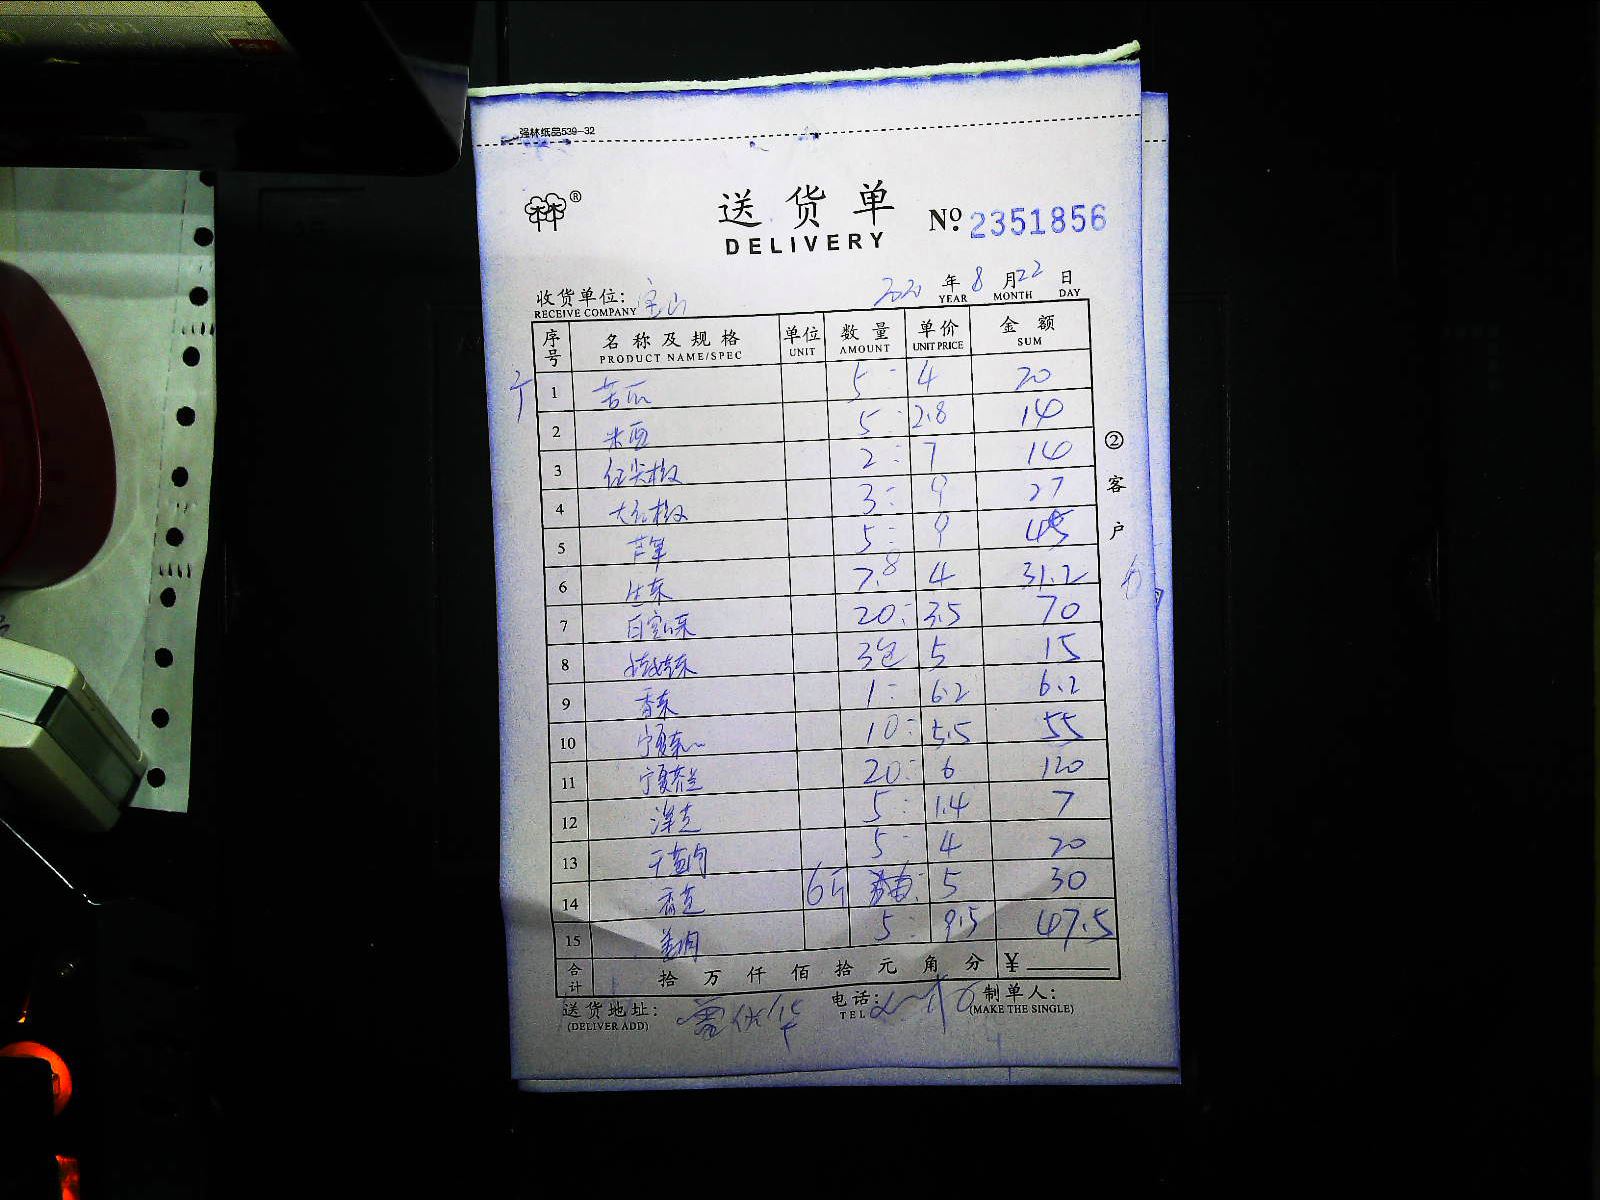 强林纸品539-32
®
送货单
DELIVERY
No. 2351856
收货单位: 宝山
RECEIVE COMPANY
2020 年 8 月 22 日
YEAR MONTH DAY
序号 名称及规格 单位 数量 单价 金额
PRODUCT NAME/SPEC UNIT AMOUNT UNIT PRICE SUM
1 苦瓜 5 4 20
2 米豆 5 2.8 14
3 红尖椒 2 7 14
4 大红椒 3 9 27
5 芦笋 5 9 45
6 7.8 4 31.2
7 20 3.5 70
8 娃娃菜 3包 5 15
9 香菜 1 6.2 6.2
10 10 5.5 55
11 20 6 120
12 洋芋 5 1.4 7
13 5 4 20
14 6斤 5 30
15 5 9.5 47.5
合计 拾 万 仟 佰 拾 元 角 分 ¥
送货地址:
(DELIVER ADD)
电话:
TEL
制单人:
(MAKE THE SINGLE)
② 客户